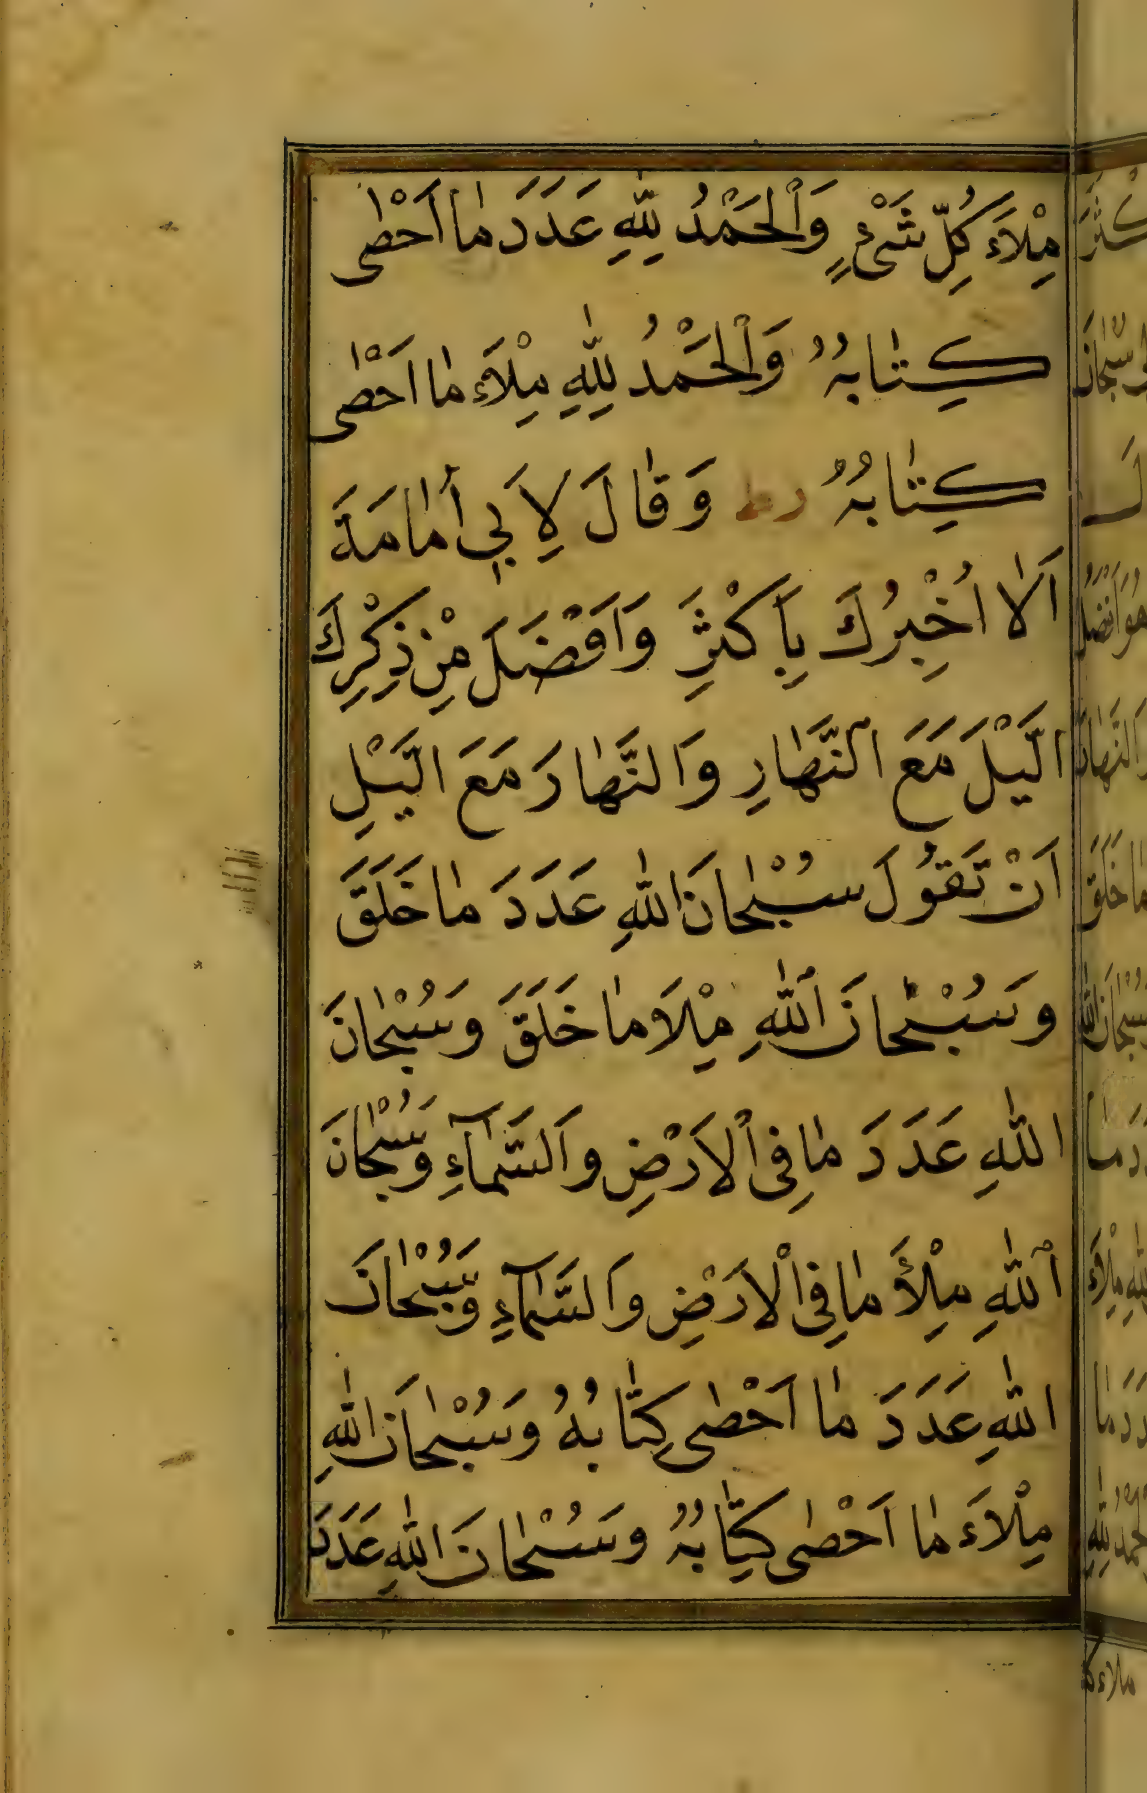 مِلْاَءَ كُلِّ شَيْءٍ وَالْحَمْدُ لِلّٰهِ عَدَدَ مٰا اَحْصٰى
كِتٰابُهُ وَالْحَمْدُ لِلّٰهِ مِلْاَءَ مٰا اَحْصٰى
كِتٰابُهُ رط وَقٰالَ لِاَبِي اُمٰامَةَ
اَلٰا اُخْبِرُكَ بِاَكْثَرِ وَاَفْضَلَ مِنْ ذِكْرِكَ
الَّيْلَ مَعَ النَّهٰارِ وَالنَّهٰارَ مَعَ الَّيْلِ
اَنْ تَقُولَ سُبْحٰانَ اللّٰهِ عَدَدَ مٰا خَلَقَ
وَسُبْحٰانَ اللّٰهِ مِلْاَ مٰا خَلَقَ وَسُبْحٰانَ
اللّٰهِ عَدَدَ مٰا فِى الْاَرْضِ وَالسَّمٰآءِ وَسُبْحٰانَ
اللّٰهِ مِلْأَ مٰا فِى الْاَرْضِ وَالسَّمٰآءِ وَسُبْحٰانَ
اللّٰهِ عَدَدَ مٰا اَحْصٰى كِتٰابُهُ وَسُبْحٰانَ اللّٰهِ
مِلْاَءَ مٰا اَحْصٰى كِتٰابُهُ وَسُبْحٰانَ اللّٰهِ عَدَدَ